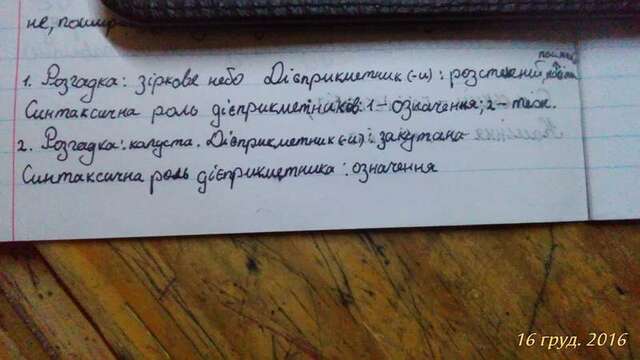 не, пошир
1. Розгадка: зіркове небо Дієприкметник(-и): розстелений,
Синтаксична роль дієприкметників: 1 – означення; 2 – теж.
2. Розгадка: капуста. Дієприкметник(-и): закутана
Синтаксична роль дієприкметника: означення
16 груд. 2016